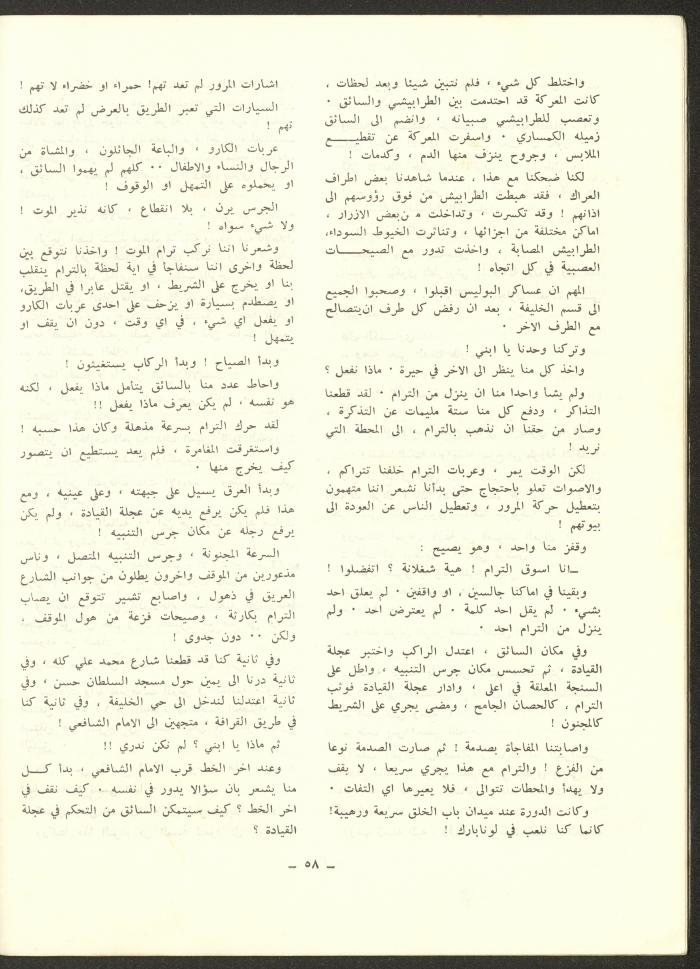 واختلط كل شيء ، فلم نتبين شيئا وبعد لحظات ،
كانت المعركة قد احتدمت بين الطرابيشي والسائق ٠
وتعصب للطرابيشي صبيانه ، وانضم الى السائق
زميله الكمساري ٠ واسفرت المعركة عن تقطيــــع
الملابس ، وجروح ينزف منها الدم ، وكدمات !
لكنا ضحكنا مع هذا ، عندما شاهدنا بعض اطراف
العراك ، فقد هبطت الطرابيش من فوق رؤوسهم الى
اذانهم ! وقد تكسرت ، وتداخلت من بعض الازرار ،
اماكن مختلفة من اجزائها ، وتناثرت الخيوط السوداء،
الطرابيش المصابة ، واخذت تدور مع الصيحــــات
العصبية في كل اتجاه !
المهم ان عساكر البوليس اقبلوا ، وصحبوا الجميع
الى قسم الخليفة ، بعد ان رفض كل طرف ان يتصالح
مع الطرف الاخر ٠
وتركنا وحدنا يا ابني !
واخذ كل منا ينظر الى الاخر في حيرة ٠ ماذا نفعل ؟
ولم يشأ واحدا منا ان ينزل من الترام ٠ لقد قطعنا
التذاكر ، ودفع كل منا ستة مليمات عن التذكرة ،
وصار من حقنا ان نذهب بالترام ، الى المحطة التي
نريد !
لكن الوقت يمر ، وعربات الترام خلفنا تتراكم ،
والاصوات تعلو باحتجاج حتى بدأنا نشعر اننا متهمون
بتعطيل حركة المرور ، وتعطيل الناس عن العودة الى
بيوتهم !
وقفز منا واحد ، وهو يصيح :
ـانا اسوق الترام ! هية شغلانة ؟ اتفضلوا !
وبقينا في اماكننا جالسين ، او واقفين ٠ لم يعلق احد
بشيء ٠ لم يقل احد كلمة ٠ لم يعترض احد ٠ ولم
ينزل من الترام احد ٠
وفي مكان السائق ، اعتدل الراكب واختبر عجلة
القيادة ، ثم تحسس مكان جرس التنبيه ، واطل على
السنجة المعلقة في اعلى ، وادار عجلة القيادة فوثب
الترام ، كالحصان الجامح ، ومضى يجري على الشريط
كالمجنون !
واصابتنا المفاجاة بصدمة ! ثم صارت الصدمة نوعا
من الفزع ! والترام مع هذا يجري سريعا ، لا يقف
ولا يهدأ والمحطات تتوالى ، فلا يعيرها اي التفات ٠
وكانت الدورة عند ميدان باب الخلق سريعة ورهيبة!
كانما كنا نلعب في لونابارك !
اشارات المرور لم تعد تهم! حمراء او خضراء لا تهم !
السيارات التي تعبر الطريق بالعرض لم تعد كذلك
تهم !
عربات الكارو ، والباعة الجائلون ، والمشاة من
الرجال والنساء والاطفال ٠٠ كلهم لم يهموا السائق ،
او يحملوه على التمهل او الوقوف !
الجرس يرن ، بلا انقطاع ، كانه نذير الموت !
ولا شيء سواه !
وشعرنا اننا نركب ترام الموت ! واخذنا نتوقع بين
لحظة واخرى اننا سنفاجأ في اية لحظة بالترام ينقلب
بنا او يخرج على الشريط ، او يقتل عابرا في الطريق،
او يصطدم بسيارة او يزحف على احدى عربات الكارو
او يفعل اي شيء ، في اي وقت ، دون ان يقف او
يتمهل !
وبدأ الصياح ! وبدأ الركاب يستغيثون !
واحاط عدد منا بالسائق يتأمل ماذا يفعل ، لكنه
هو نفسه ، لم يكن يعرف ماذا يفعل !!
لقد حرك الترام بسرعة مذهلة وكان هذا حسبه !
واستغرقت المغامرة ، فلم يعد يستطيع ان يتصور
كيف يخرج منها ٠
وبدأ العرق يسيل على جبهته ، وعلى عينيه ، ومع
هذا فلم يكن يرفع يديه عن عجلة القيادة ، ولم يكن
يرفع رجله عن مكان جرس التنبيه !
السرعة المجنونة ، وجرس التنبيه المتصل ، وناس
مذعورين من الموقف واخرون يطلون من جوانب الشارع
العريق في ذهول ، واصابع تشير تتوقع ان يصاب
الترام بكارثة ، وصيحات فزعة من هول الموقف ،
ولكن ٠٠ دون جدوى !
وفي ثانية كنا قد قطعنا شارع محمد علي كله ، وفي
ثانية درنا الى يمين حول مسجد السلطان حسن ، وفي
ثانية اعتدلنا لندخل الى حي الخليفة ، وفي ثانية كنا
في طريق القرافة ، متجهين الى الامام الشافعي !
ثم ماذا يا ابني ؟ لم نكن ندري !!
وعند اخر الخط قرب الامام الشافعي ، بدأ كـــل
منا يشعر بان سؤالا يدور في نفسه ٠ كيف نقف في
اخر الخط ؟ كيف سيتمكن السائق من التحكم في عجلة
القيادة ؟
ـ ٥٨ ـ